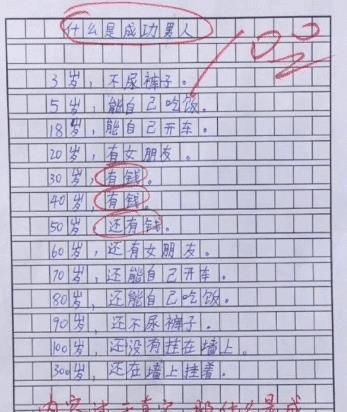 什么是成功男人
100
3岁，不尿裤子。
5岁，能自己吃饭。
18岁，能自己开车。
20岁，有女朋友。
30岁，有钱。
40岁，有钱。
50岁，还有钱。
60岁，还有女朋友。
70岁，还能自己开车。
80岁，还能自己吃饭。
90岁，还不尿裤子。
100岁，还没有挂在墙上。
300岁，还在墙上挂着。